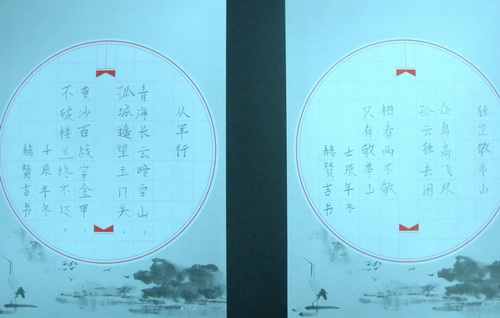 从军行
青海长云暗雪山，
孤城遥望玉门关，
黄沙百战穿金甲，
不破楼兰终不还。
壬辰年冬
赫赞吉书
独坐敬亭山
众鸟高飞尽，
孤云独去闲
相看两不
只有敬亭山.
壬辰年冬
赫赞吉书